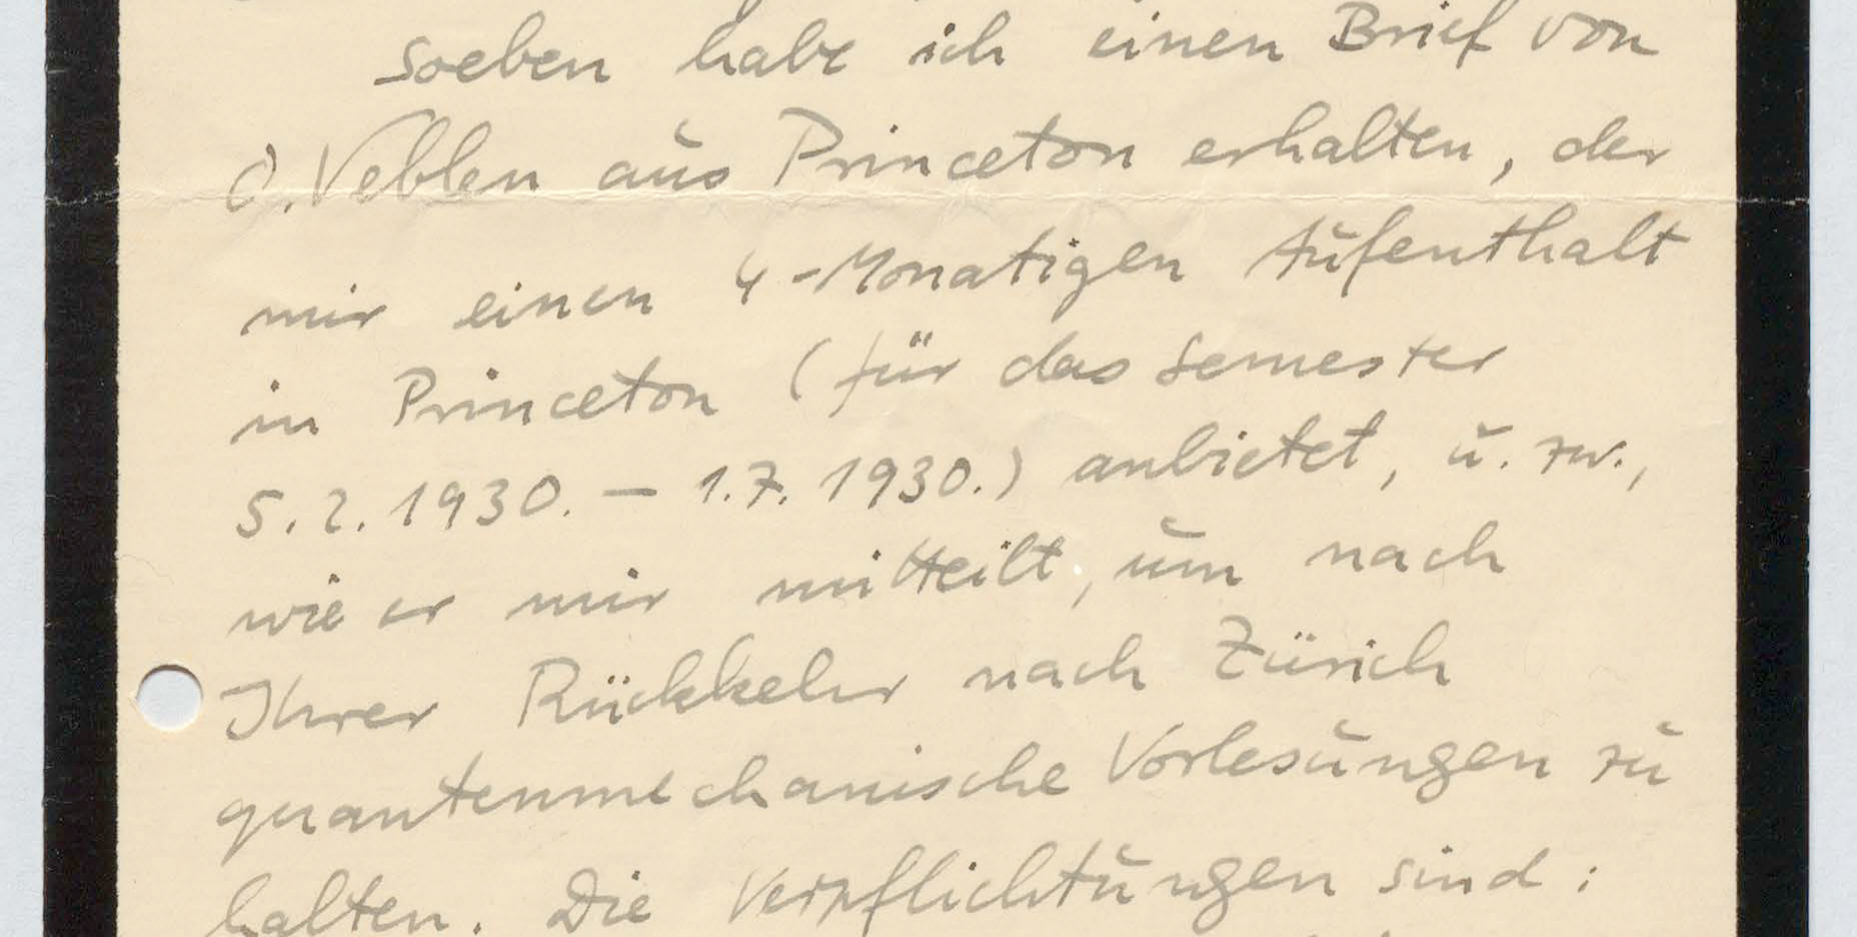 soeben habe ich einen Brief von
O. Veblen aus Princeton erhalten, der
mir einen 4-Monatigen Aufenthalt
in Princeton (für das Semester
5.2.1930. — 1.7.1930.) anbietet, u. zw.,
wie er mir mitteilt, um nach
Ihrer Rückkehr nach Zürich
quantenmechanische Vorlesungen zu
halten. Die Verpflichtungen sind: